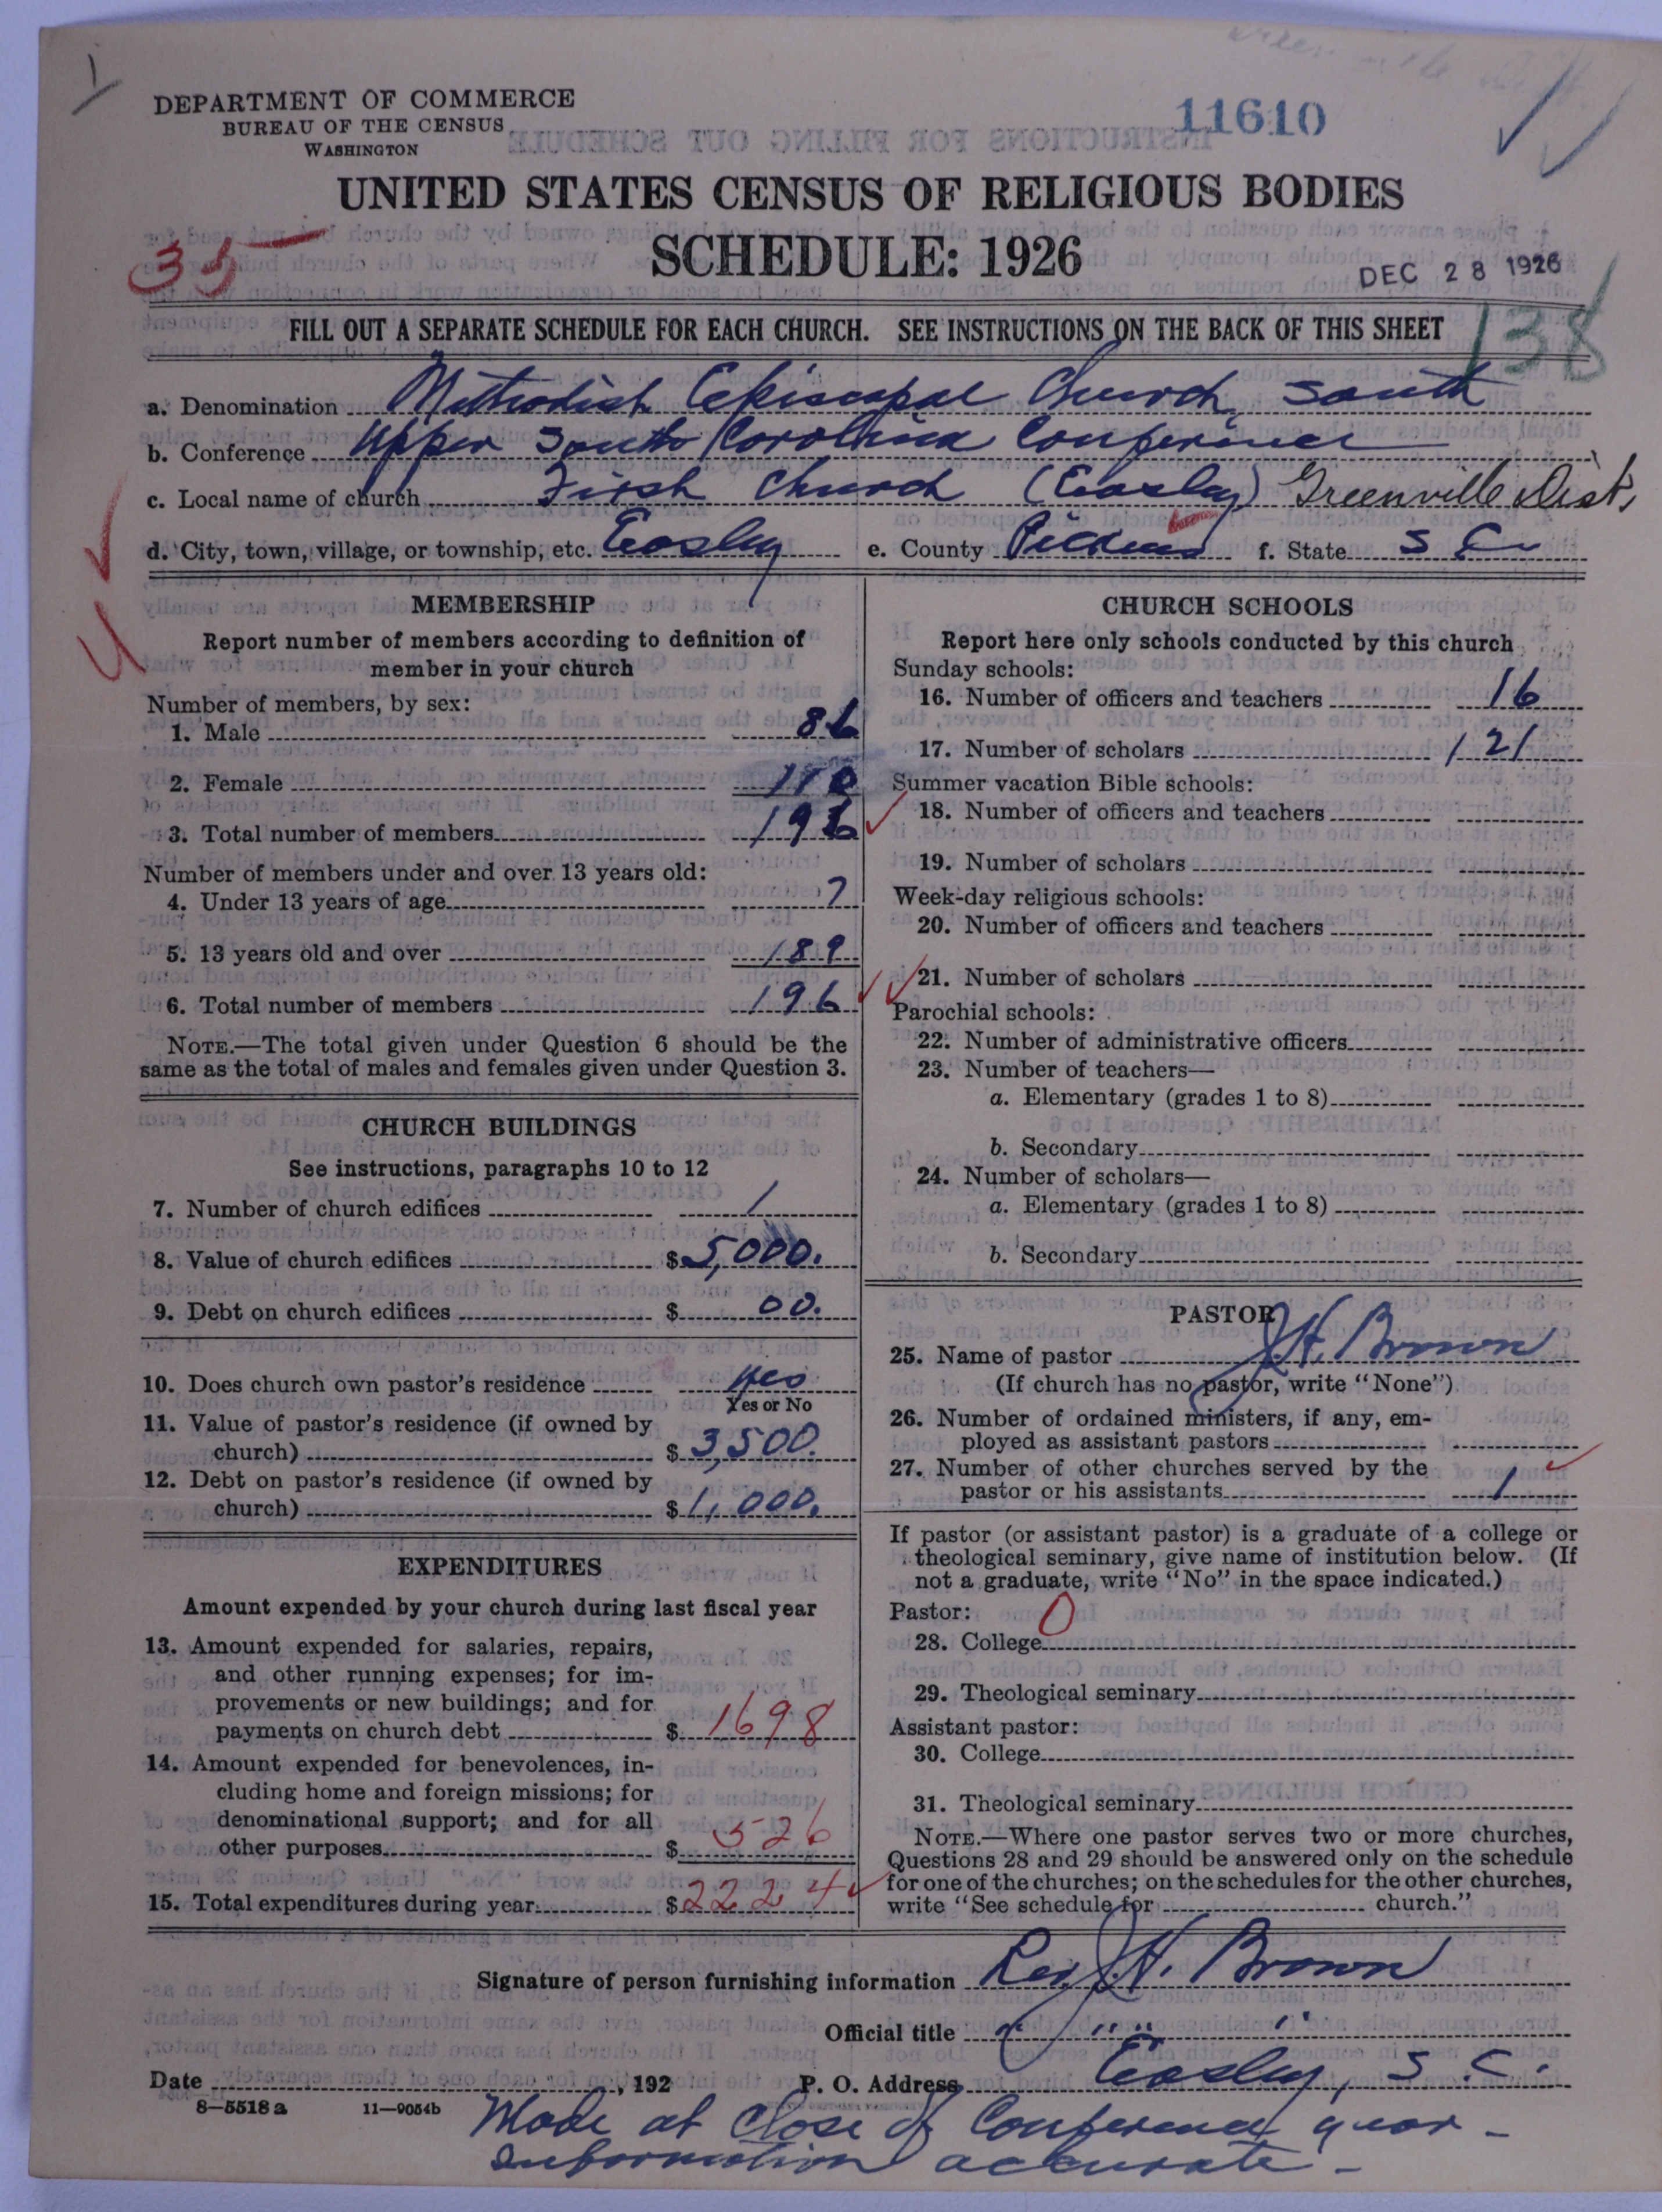 DEPARTMENT OF COMMERCE
BUREAU OF THE CENSUS
WASHINGTON
11610
UNITED STATES CENSUS OF RELIGIOUS BODIES
SCHEDULE: 1926
35
DEC 28 1926
FILL OUT A SEPARATE SCHEDULE FOR EACH CHURCH. SEE INSTRUCTIONS ON THE BACK OF THIS SHEET
138
a. Denomination Methodist Episcopal Church, South
b. Conference Upper South Carolina Conference
c. Local name of church First Church (Easley) Greenville Dist.
d. City, town, village, or township, etc. Easley e. County Pickens f. State S C
MEMBERSHIP
Report number of members according to definition of
member in your church
Number of members, by sex:
1. Male 86
2. Female 110
3. Total number of members 196
Number of members under and over 13 years old:
4. Under 13 years of age 7
5. 13 years old and over 189
6. Total number of members 196
NOTE.—The total given under Question 6 should be the
same as the total of males and females given under Question 3.
CHURCH BUILDINGS
See instructions, paragraphs 10 to 12
7. Number of church edifices 1
8. Value of church edifices $5,000.
9. Debt on church edifices $ 00.
10. Does church own pastor's residence yes
Yes or No
11. Value of pastor's residence (if owned by
church) $ 3,500.
12. Debt on pastor's residence (if owned by
church) $ 1,000.
EXPENDITURES
Amount expended by your church during last fiscal year
13. Amount expended for salaries, repairs,
and other running expenses; for im-
provements or new buildings; and for
payments on church debt $ 1698
14. Amount expended for benevolences, in-
cluding home and foreign missions; for
denominational support; and for all
other purposes $ 526
15. Total expenditures during year $2224
CHURCH SCHOOLS
Report here only schools conducted by this church
Sunday schools:
16. Number of officers and teachers 16
17. Number of scholars 121
Summer vacation Bible schools:
18. Number of officers and teachers
19. Number of scholars
Week-day religious schools:
20. Number of officers and teachers
21. Number of scholars
Parochial schools:
22. Number of administrative officers
23. Number of teachers—
a. Elementary (grades 1 to 8)
b. Secondary
24. Number of scholars—
a. Elementary (grades 1 to 8)
b. Secondary
PASTOR
25. Name of pastor J. H. Brown
(If church has no pastor, write "None")
26. Number of ordained ministers, if any, em-
ployed as assistant pastors
27. Number of other churches served by the
pastor or his assistants 1
If pastor (or assistant pastor) is a graduate of a college or
theological seminary, give name of institution below. (If
not a graduate, write "No" in the space indicated.)
Pastor: 0
28. College
29. Theological seminary
Assistant pastor:
30. College
31. Theological seminary
NOTE.—Where one pastor serves two or more churches,
Questions 28 and 29 should be answered only on the schedule
for one of the churches; on the schedules for the other churches,
write "See schedule for church."
Signature of person furnishing information Rev. J. H. Brown
Official title " " " "
Date , 192 P. O. Address Easley, S. C.
8—5518a 11—9054b
Made at Close of Conference year -
Information accurate -